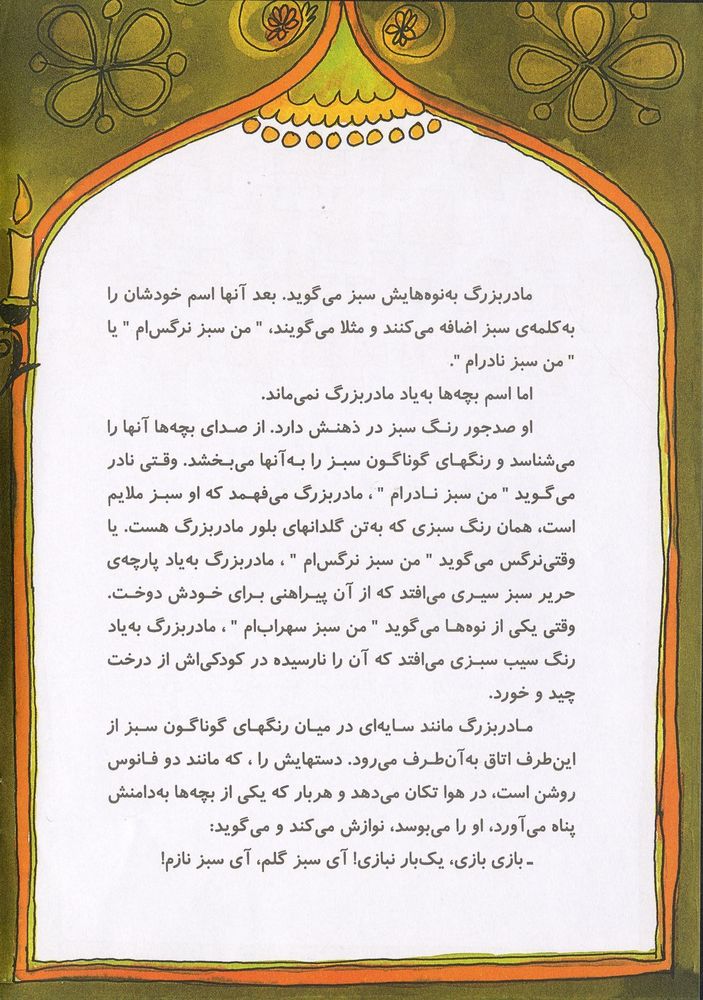 مادربزرگ به‌نوه‌هایش سبز می‌گوید. بعد آنها اسم خودشان را
به‌کلمه‌ی سبز اضافه می‌کنند و مثلا می‌گویند، " من سبز نرگس‌ام " یا
" من سبز نادرام ".
اما اسم بچه‌ها به‌یاد مادربزرگ نمی‌ماند.
او صدجور رنگ سبز در ذهنش دارد. از صدای بچه‌ها آنها را
می‌شناسد و رنگهای گوناگون سبز را به‌آنها می‌بخشد. وقتی نادر
می‌گوید " من سبز نادرام " ، مادربزرگ می‌فهمد که او سبز ملایم
است، همان رنگ سبزی که به‌تن گلدانهای بلور مادربزرگ هست. یا
وقتی‌نرگس می‌گوید " من سبز نرگس‌ام " ، مادربزرگ به‌یاد پارچه‌ی
حریر سبز سیری می‌افتد که از آن پیراهنی برای خودش دوخت.
وقتی یکی از نوه‌ها می‌گوید " من سبز سهراب‌ام " ، مادربزرگ به‌یاد
رنگ سیب سبزی می‌افتد که آن را نارسیده در کودکی‌اش از درخت
چید و خورد.
مادربزرگ مانند سایه‌ای در میان رنگهای گوناگون سبز از
این‌طرف اتاق به‌آن‌طرف می‌رود. دستهایش را ، که مانند دو فانوس
روشن است، در هوا تکان می‌دهد و هربار که یکی از بچه‌ها به‌دامنش
پناه می‌آورد، او را می‌بوسد، نوازش می‌کند و می‌گوید:
ـ بازی بازی، یک‌بار نبازی! آی سبز گلم، آی سبز نازم!